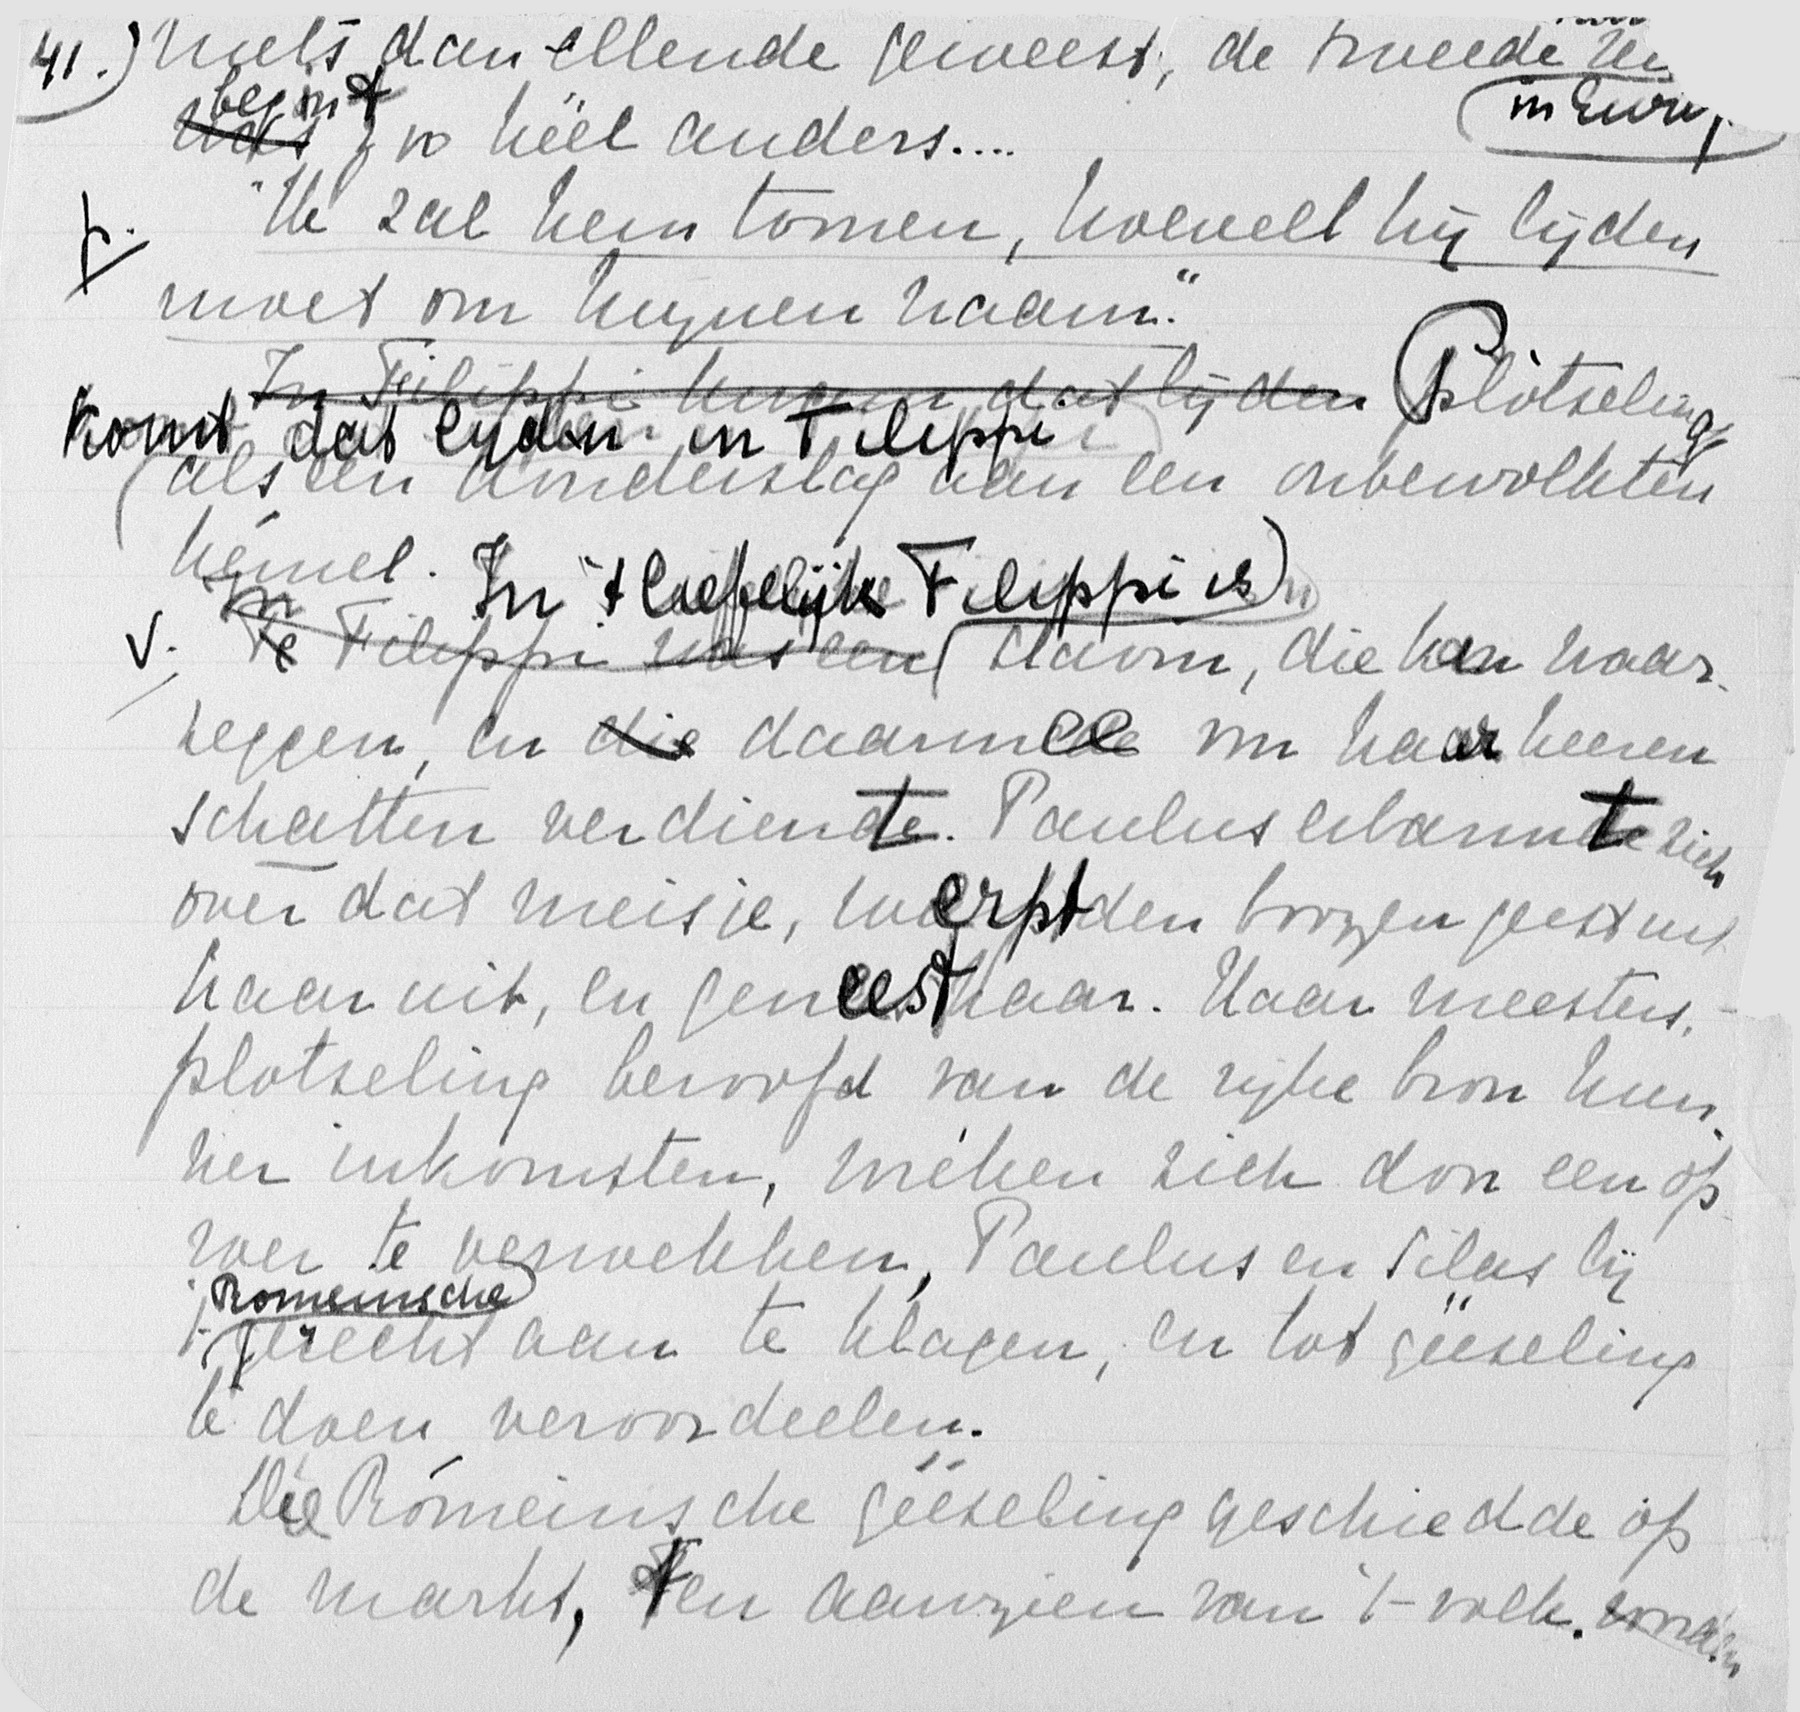 41.) niets dan ellende geweest, de tweede
in Euro
begint
was zo héél anders....
p. "Ik zal hem toonen, hoeveel hij lijden
moet om Mijnen naam."
In Filippi kwam dat lijden Plotseling
komt dat lijden in Filippi
als een donderslag aan een onbewolkten
hemel. In 't liefelijke Filippi is
In
v. Te Filippi was een slavin, die kan waar-
zeggen, en die daarmee voor haar heeren
schatten verdiende. Paulus erbarmt zich
over dat meisje, werpt den boozen geest uit
haar uit, en geneest haar. Haar meesters,
plotseling beroofd van de rijke bron hun-
ner inkomsten, wreken zich door een op-
roer te verwekken, Paulus en Silas bij
Romeinsche
't gerecht aan te klagen, en tot geeseling
te doen veroordeelen.
Die Romeinsche geeseling geschiedde op
de markt, ten aanzien van 't volk.